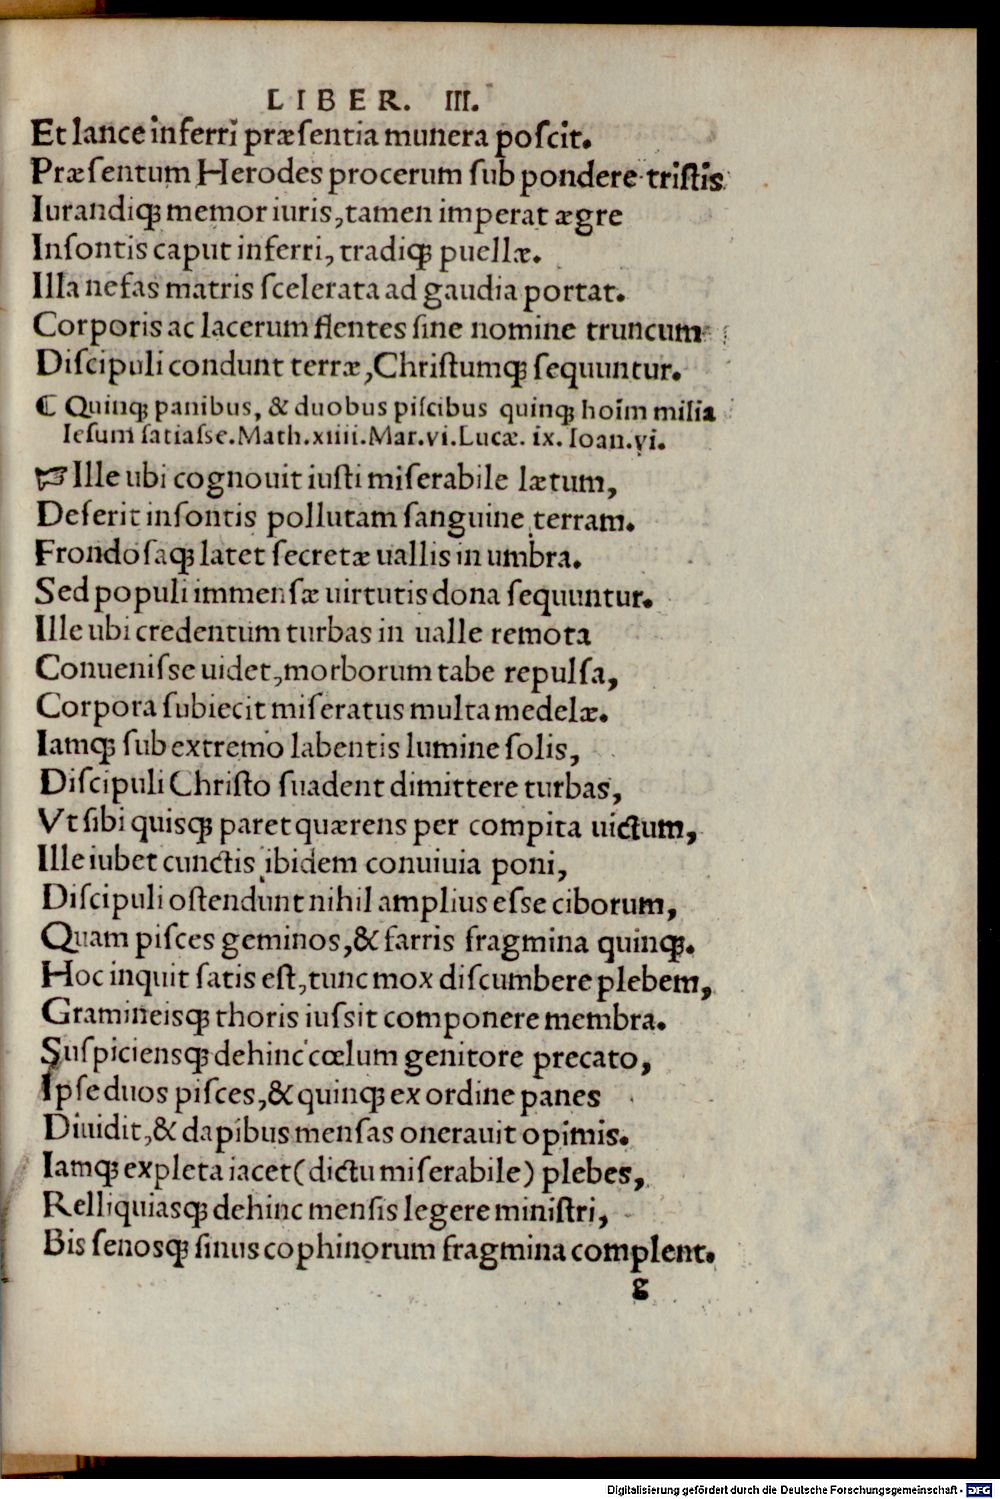 LIBER. III.
Et lance inferri præsentia munera poscit.
Præsentum Herodes procerum sub pondere tristis
Iurandiqꝫ memor iuris, tamen imperat ægre
Insontis caput inferri, tradiqꝫ puellæ.
Illa nefas matris scelerata ad gaudia portat.
Corporis ac lacerum flentes sine nomine truncum
Discipuli condunt terræ, Christumqꝫ sequuntur.
⸿ Quinqꝫ panibus, & duobus piscibus quinqꝫ hoīm milia
Iesum satiasse. Math. xiiii. Mar. vi. Lucæ. ix. Ioan. vi.
☞ Ille ubi cognouit iusti miserabile lætum,
Deserit insontis pollutam sanguine terram.
Frondosaqꝫ latet secretæ uallis in umbra.
Sed populi immensæ uirtutis dona sequuntur.
Ille ubi credentum turbas in ualle remota
Conuenisse uidet, morborum tabe repulsa,
Corpora subiecit miseratus multa medelæ.
Iamqꝫ sub extremo labentis lumine solis,
Discipuli Christo suadent dimittere turbas,
Vt sibi quisqꝫ paret quærens per compita uictum,
Ille iubet cunctis ibidem conuiuia poni,
Discipuli ostendunt nihil amplius esse ciborum,
Quam pisces geminos, & farris fragmina quinqꝫ.
Hoc inquit satis est, tunc mox discumbere plebem,
Gramineisqꝫ thoris iussit componere membra.
Suspiciensqꝫ dehinc cœlum genitore precato,
Ipse duos pisces, & quinqꝫ ex ordine panes
Diuidit, & dapibus mensas onerauit opimis.
Iamqꝫ expleta iacet (dictu miserabile) plebes,
Relliquiasqꝫ dehinc mensis legere ministri,
Bis senosqꝫ sinus cophinorum fragmina complent.
g
Digitalisierung gefördert durch die Deutsche Forschungsgemeinschaft - DFG